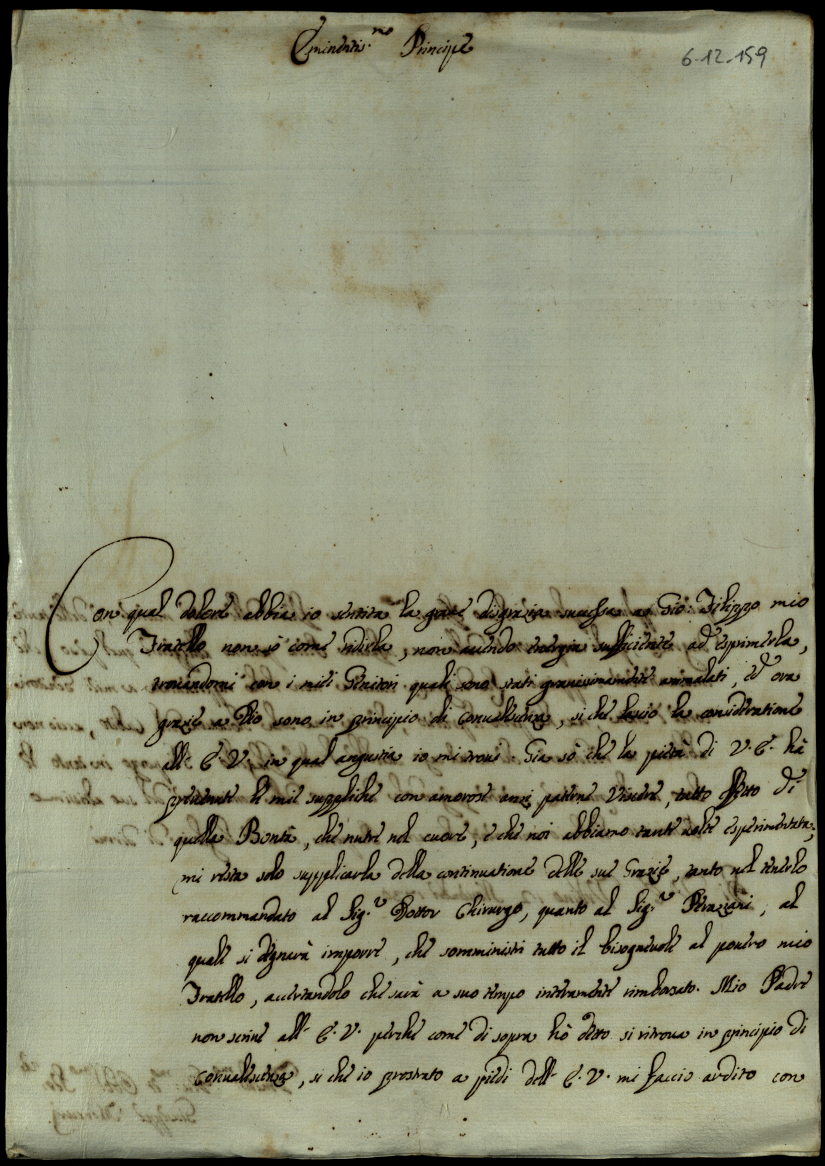 Eminentis.mo Principe
6-12-159
Con qual dolore abbia io sentita la grave disgrazia successa a Gio: Filippo mio
Fratello non sò come ridirla, non avendo energia sufficiente ad esprimerla,
trovandomi con i miei Genitori quali sono stati gravissimamente ammalati, ed ora
grazie a Dio sono in principio di convalescenza, si che lascio la consideratione
all' E. V. in qual angustia io mi trovi. Gia sò che la pietà di V. E. hà
prevenute le mie suppliche con amorose anzi paterne viscere, tutto effetto di
quella Bontà, che nutre nel cuore, e che noi abbiamo tante volte esperimentata;
mi resta solo supplicarla della continuatione delle sue Grazie, tanto nel tenerlo
raccommandato al Sig.r Dottor Chirurgo, quanto al Sig.r, al
quale si degnerà imporre, che somministri tutto il bisognevole al povero mio
Fratello, accertandolo che sarà a suo tempo intieramente rimborsato. Mio Padre
non scrive all' E. V. perche come di sopra hò detto si ritrova in principio di
convalescenza, si che io prostrato a piedi dell' E. V. mi faccio ardito con